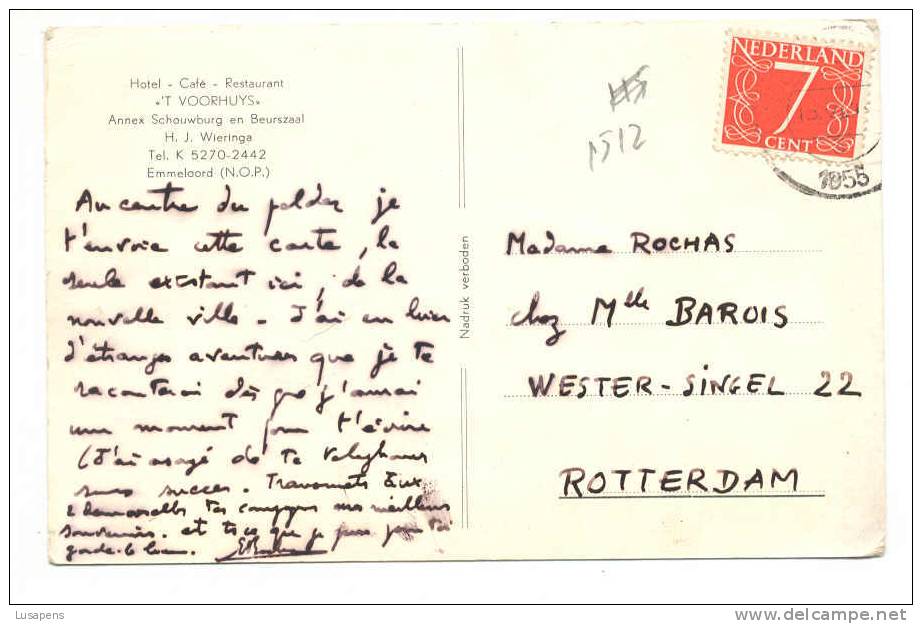 Hotel - Café - Restaurant
«'T VOORHUYS»
Annex Schouwburg en Beurszaal
H. J. Wieringa
Tel. K 5270-2442
Emmeloord (N.O.P.)
Au centre du polder je
t'envoie cette carte, la
seule existant ici, de la
nouvelle ville - J'ai eu hier
d'étranges aventures que je te
raconterai dès que j'aurai
un moment pour t'écrire
(J'ai essayé de te
sans succès. Transmets aux
2 demoiselles tes compagnes mes meilleurs
souvenirs. et ce que je pour toi
garde-le bien.
Nadruk verboden
NEDERLAND
7
CENT
1955
1512
Madame ROCHAS
chez Mlle BAROIS
WESTER-SINGEL 22
ROTTERDAM
Lusapens
www.delcampe.net